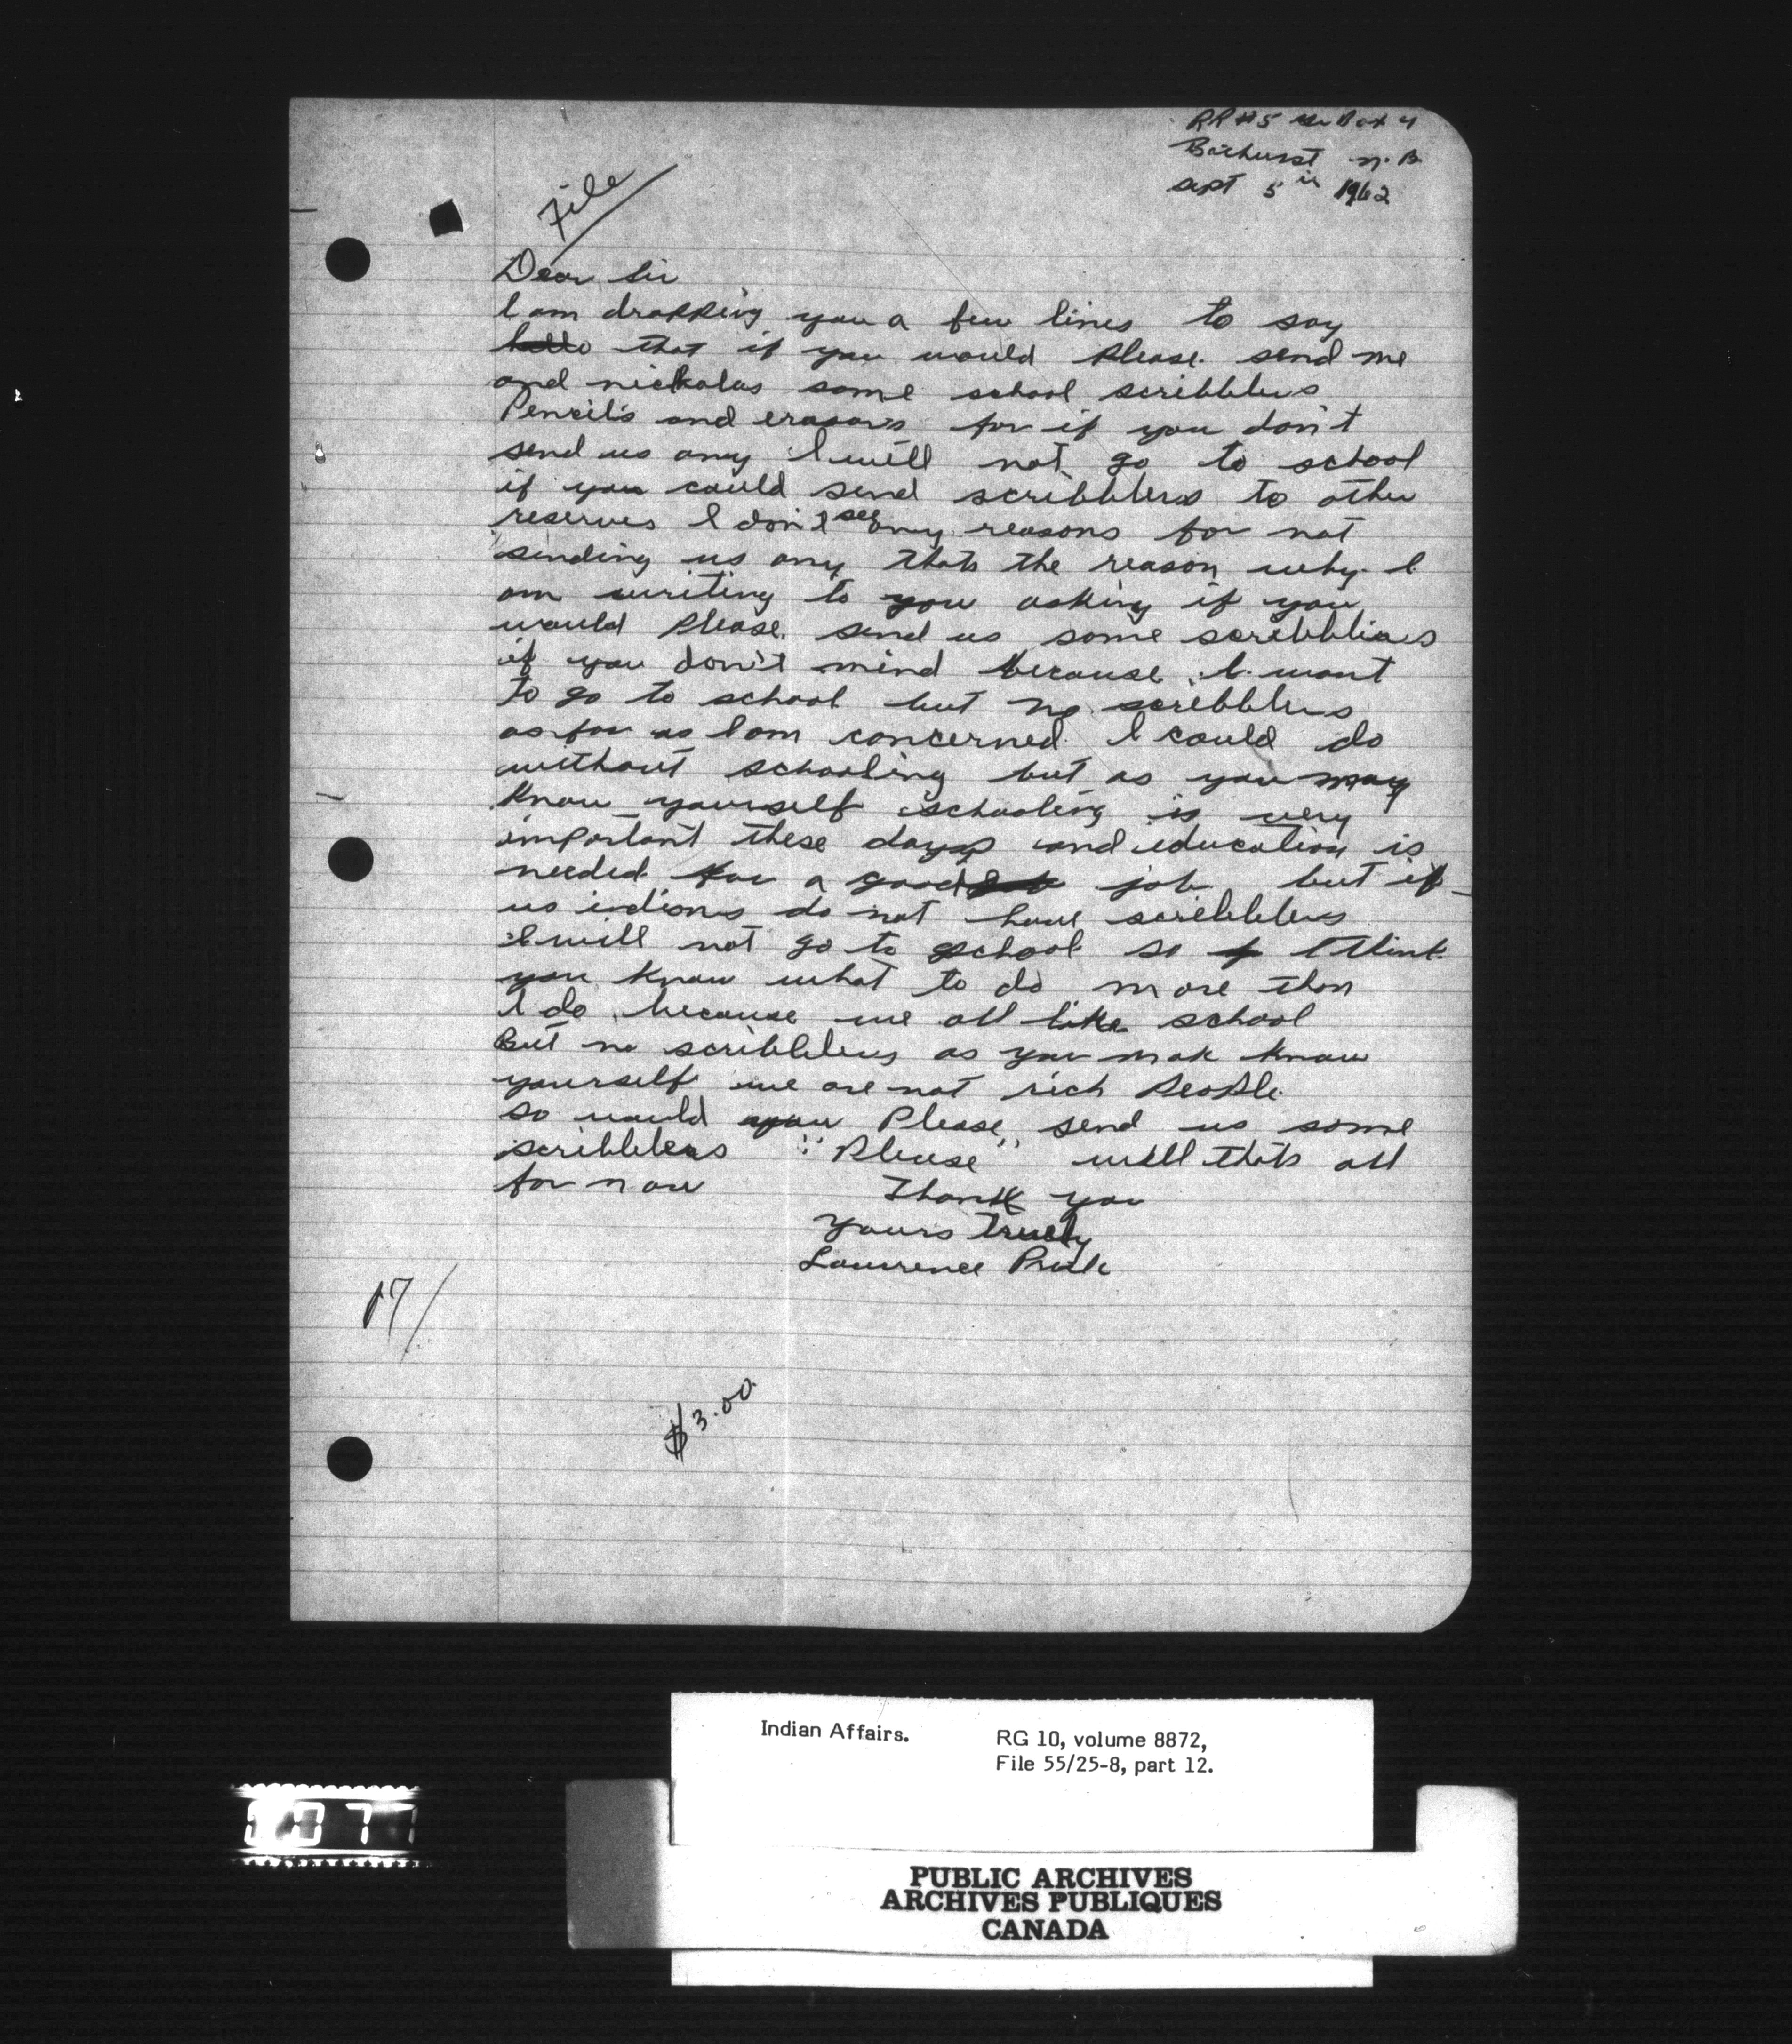 RR #5 Box 4
Bathurst N.B.
Sept 5 1962
File
Dear Sir
I am dropping you a few lines to say
hello that if you would Please send me
and nickolas some school scribblers
Pencil's and erasors for if you don't
send us any I will not go to school
if you could send scribblers to other
reserves I don't see any reasons for not
sending us any thats the reason why I
am writing to you asking if you
would Please send us some scribblers
if you don't mind because I want
to go to school but no scribblers
as far as I am concerned I could do
without schooling but as you may
know yourself schooling is very
important these days and education is
needed for a good job but if
us indians do not have scribblers
I will not go to school so I think
you know what to do more than
I do because we all like school
But no scribblers as you mak know
yourself we are not rich People
so would you Please send us some
scribblers "Please" well thats all
for now Thank you
Yours truely
Lawrence
17/
$3.00
Indian Affairs. RG 10, volume 8872,
File 55/25-8, part 12.
77
PUBLIC ARCHIVES
ARCHIVES PUBLIQUES
CANADA